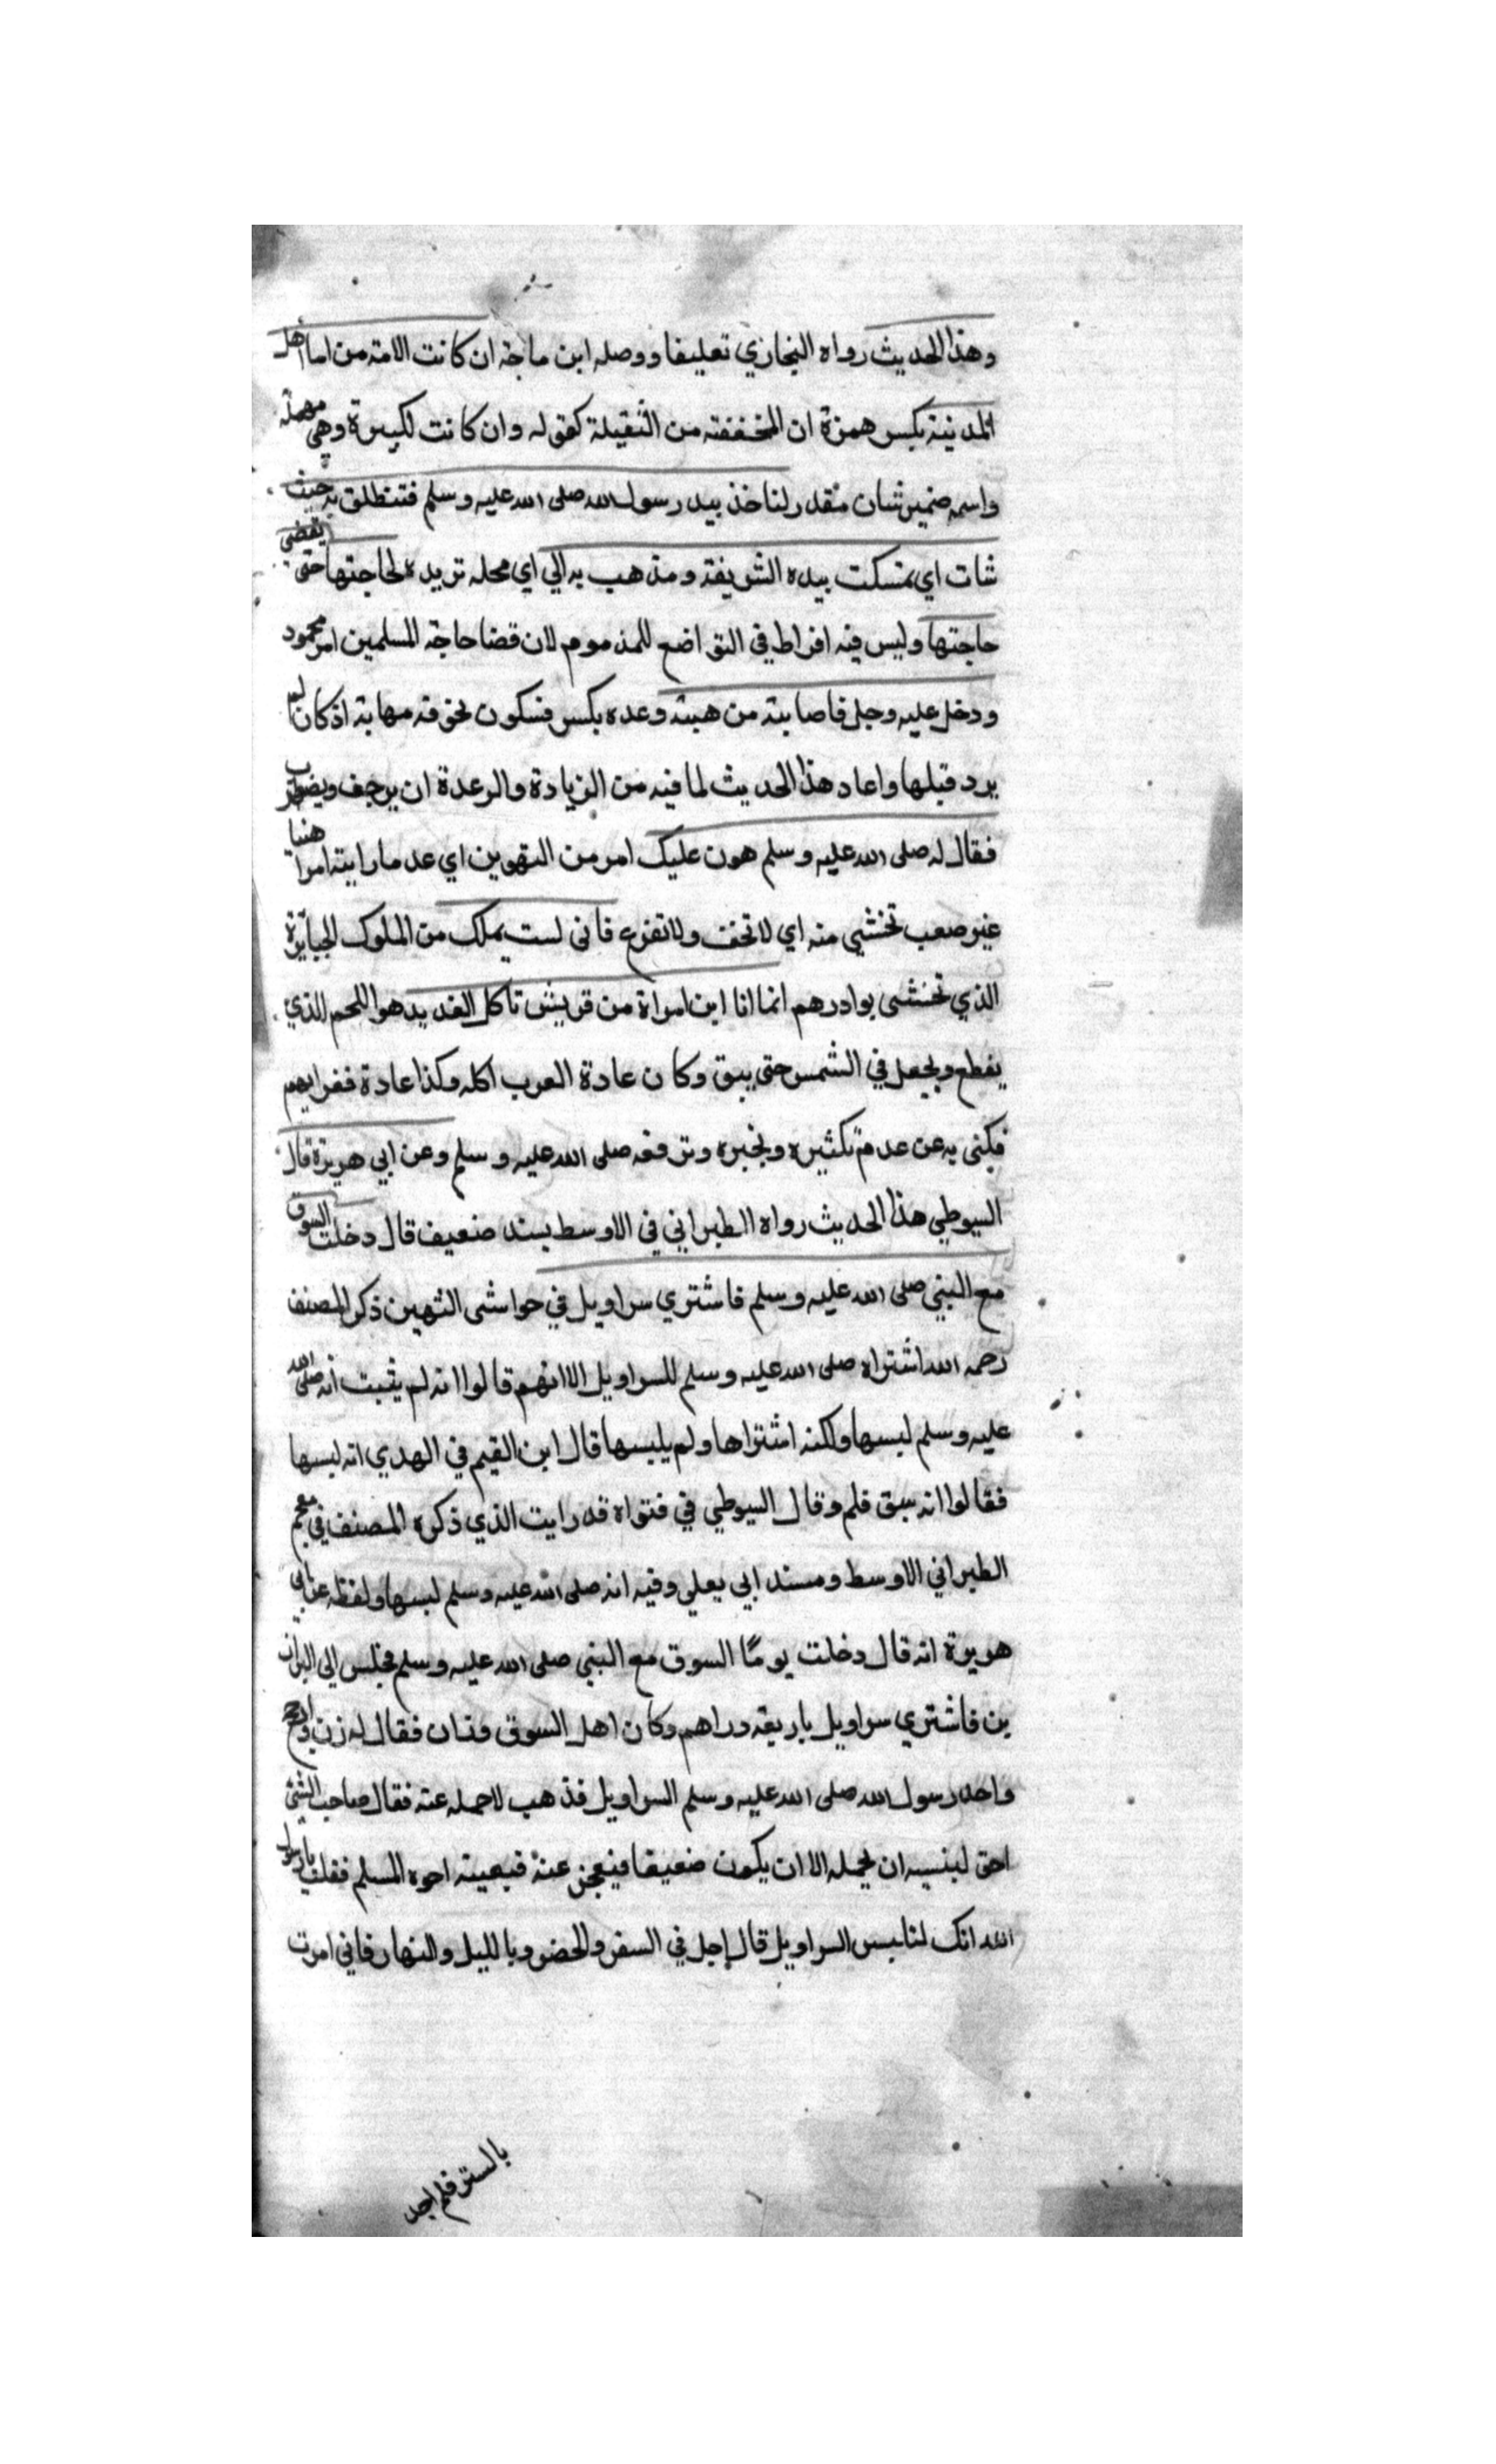 وهذا الحديث رواه البخاري تعليقا ووصله ابن ماجة ان كانت الامة من اما اهل
المدنية بكسر همزة ان المخففة من الثقيلة كقوله وان كانت لكبيرة وهي مهملة
واسمه ضمير شان مقدر لتاخذ بيد رسول الله صلى الله عليه وسلم فتنطلق به حيث
شات اي تمسكت بيده الشريفة ومذهب به الي اي محله تريده لحاجتها حتى يقضي
حاجتها وليس فيه افراط في التواضع للمذموم لان قضا حاجة المسلمين امر محمود
ودخل عليه رجل فاصابته من هيبته رعده بكسر فسكون لخوفه مهابة اذ كان لم
يرد قبلها واعاد هذا الحديث لما فيه من الزيادة والرعدة ان يرجف ويضطرب
فقال له صلى الله عليه وسلم هون عليك امر من التهوين اي عد ما رايته امرا هنيا
غير صعب تخشي منه اي لا تخف ولا تفزع فاني لست بملك من الملوك الجبابرة
الذي تخشى بوادرهم انما انا ابن امراة من قريش تاكل القديد هو اللحم الذي
يقطع ويجعل في الشمس حتى يبق وكان عادة العرب اكله وكذا عادة فقرايهم
فكنى به عن عدم تكثيره وتجبره وترفعه صلى الله عليه وسلم وعن ابي هريرة قال
السيوطي هذا الحديث رواه الطبراني في الاوسط بسند ضعيف قال دخلت السوق
مع النبي صلى الله عليه وسلم فاشتري سراويل في حواشى الثهين ذكر المصنف
رحمه الله اشتراه صلى الله عليه وسلم للسراويل الا انهم قالوا انه لم يثبت انه صلى الله
عليه وسلم لبسها ولكنه اشتراها ولم يلبسها قال ابن القيم في الهدي انه لبسها
فقالوا انه سبق قلم وقال السيوطي في فتواه قد رايت الذي ذكره المصنف في معجم
الطبراني الاوسط ومسند ابي يعلي وفيه انه صلى الله عليه وسلم لبسها ولفظه عن ابي
هريرة انه قال دخلت يومًا السوق مع النبي صلى الله عليه وسلم فجلس الي البزاز
ين فاشتري سراويل باربعة دراهم وكان اهل السوق وزان فقال له زن وارجح
واخد رسول الله صلى الله عليه وسلم السراويل فذهب لاحمله عنه فقال صاحب الشئ
احق لبنسيه ان يحمله الا ان يكون ضعيفا فيعجز عنه فيعينه اخوه المسلم فقلت يا رسول
الله انك لتلبس السراويل قال اجل في السفر والحضر وبالليل والنهار فاني امرت
بالستر فلم اجد